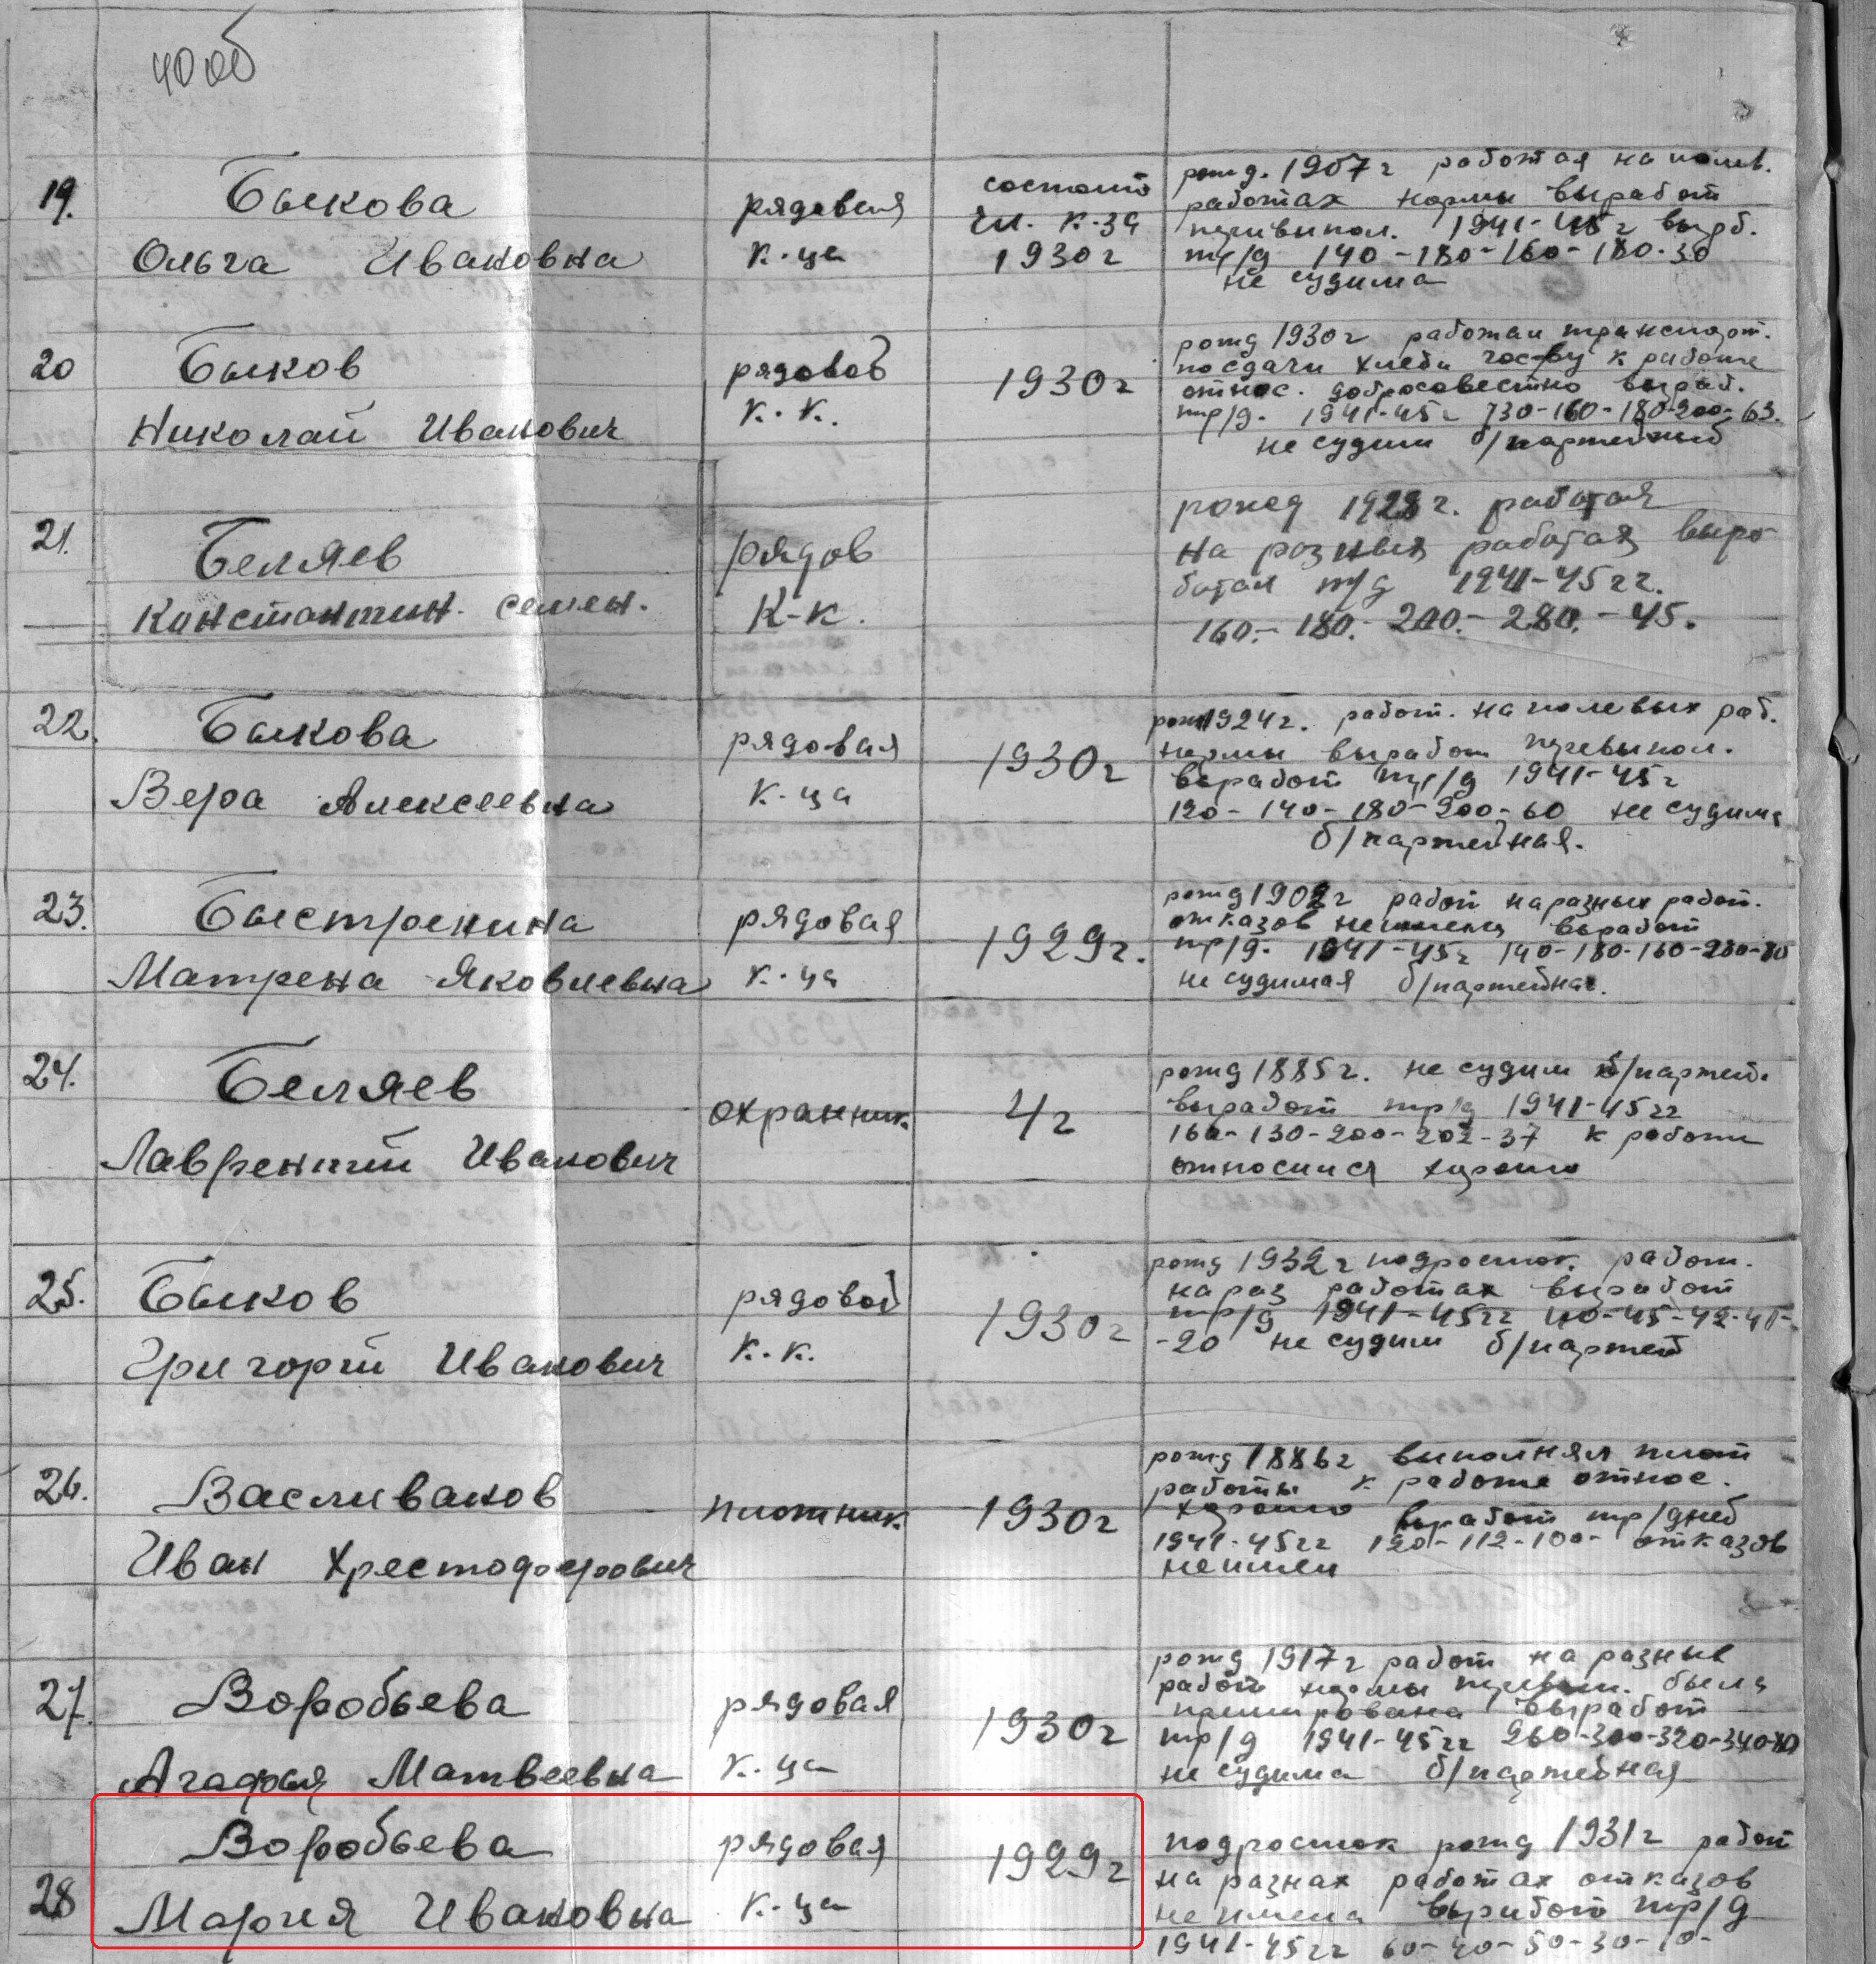 40 об
19.
Быкова
Ольга Ивановна
рядовая
к-ца
состоит
чл. к-за
1930 г
рожд. 1907 г работая на полев.
работах нормы выработ
перевыпол. 1941-45 г выраб.
тр/д 140-180-160-180-30
не судима
20
Быков
Николай Иванович
рядовой
к.к.
1930 г
рожд 1930 г работал транспорт.
по сдачи хлеба гос-ву к работе
относ. добросовестно выраб.
тр/д. 1941-45 г 130-160-180-200-63.
не судим б/партейный
21.
Беляев
Константин. семен.
рядов
К-к.
рожд 1928 г. работая
на разных работах выро
ботал т/д 1941-45 гг.
160.- 180.- 200.- 280.- 45.
22.
Быкова
Вера Алексеевна
рядовая
к-ца
1930 г
рожд 1924 г. работ. на полевых раб.
нормы выработ перевыпол.
выработ тр/д 1941-45 г
120-140-180-200-60 не судима
б/партейная.
23.
Быстренина
Матрена Яковлевна
рядовая
к-ца
1929 г.
рожд 1902 г работ на разных работ.
отказов не имела выработ
тр/д. 1941-45 г 140-180-160-200-80
не судимая б/партейная.
24.
Беляев
Лаврентий Иванович
охранник
4 г
рожд 1885 г. не судим б/партей.
выработ тр/д 1941-45 гг
160-130-200-202-37 к работе
относился хорошо
25.
Быков
Григорий Иванович
рядовой
к.к.
1930 г
рожд 1932 г подросток. работ.
на раз работах выработ
тр/д 1941-45 гг 40-45-42-41-
-20 не судим б/партей
26.
Васливанов
Иван Хрестофорович
плотник
1930 г
рожд 1886 г выполнял плот
работы к работе относ.
хорошо выработ тр/дней
1941-45 гг 120-112-100- отказов
не имел
27.
Воробьева
Агафья Матвеевна
рядовая
к-ца
1930 г
рожд 1917 г работ на разных
работ нормы перевып. была
премирована выработ
тр/д 1941-45 гг 260-300-320-340-80
не судима б/партейная
28
Воробьева
Мария Ивановна
рядовая
к-ца
1929 г
подросток рожд 1931 г работ
на разнах работах отказов
не имела выработ тр/д
1941-45 гг 60-40-50-30-10-